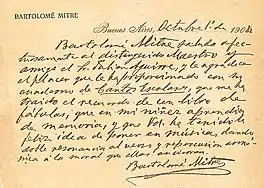 BARTOLOMÉ MITRE
Buenos Aires, Octubre 1º de 190
Bartolomé Mitre saluda afec-
tuosamente al distinguido Maestro y
amigo el Sr. Aguirre, y le agradece
el placer que le ha proporcionado con su
cuaderno de Cantos Escolares, que me ha
traido el recuerdo de un libro de
fábulas, que en mi niñez aprendí
de memoria, y que Vd. ha tenido la
feliz idea de poner en música, dando
doble resonancia al verso y repercusion armó-
nica á la moral que ellas
Bartolomé Mitre